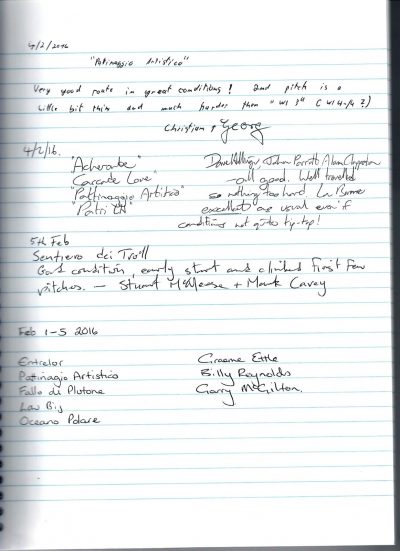 4/2/2016
"Pattinaggio Artistico"
Very good route in great conditions! 2nd pitch is a
little bit thin and much harder then "WI 3" (WI4-/4 ?)
Christian + Georg
4/2/16.
"Acherate"
"Cascade Love"
"Pattinaggio Artistico"
"Patri
Dave John Alan
- all good. Well travelled
so nothing too hard. La Barme
excellent as usual even if
conditions not quite tip-top!
5th Feb
Sentiero dei Troll
Good condition, early start and climbed first few
pitches. - Stuart McAleese + Mark Carey
Feb 1-5 2016
Entrelor
Patinagio Artistico
Fallo di Plutone
Lau Bij
Oceano Polare
Graeme Ettle
Billy Reynolds
Garry McGilton.